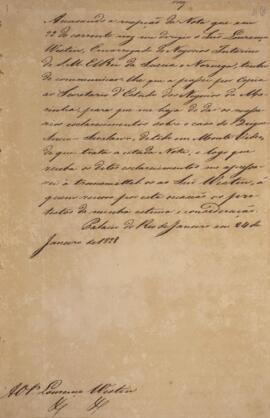 Accusando a recepção da Nota que em
22 do corrente me dirigio o Snr. Lourenço
Westin, Encarregado de Negocios Interino
de S. M. El Rei de Suecia e Noruega, tenho
de communicar-lhe que a passei por copia
ao Secretario d'Estado dos Negocios da Ma-
rinha, para que me haja de dar os
esclarecimentos sobre o caso do Brigue
Sueco detido em Monte Video,
de que trata a citada Nota, e logo que
receba os ditos esclarecimentos me apressa-
rei a transmittil-os ao Snr. Westin, a
quem renovo por esta occasião os pro-
testos de minha estima e consideração.
Palacio do Rio de Janeiro em 24 de
Janeiro de 1828
Lourenço Westin